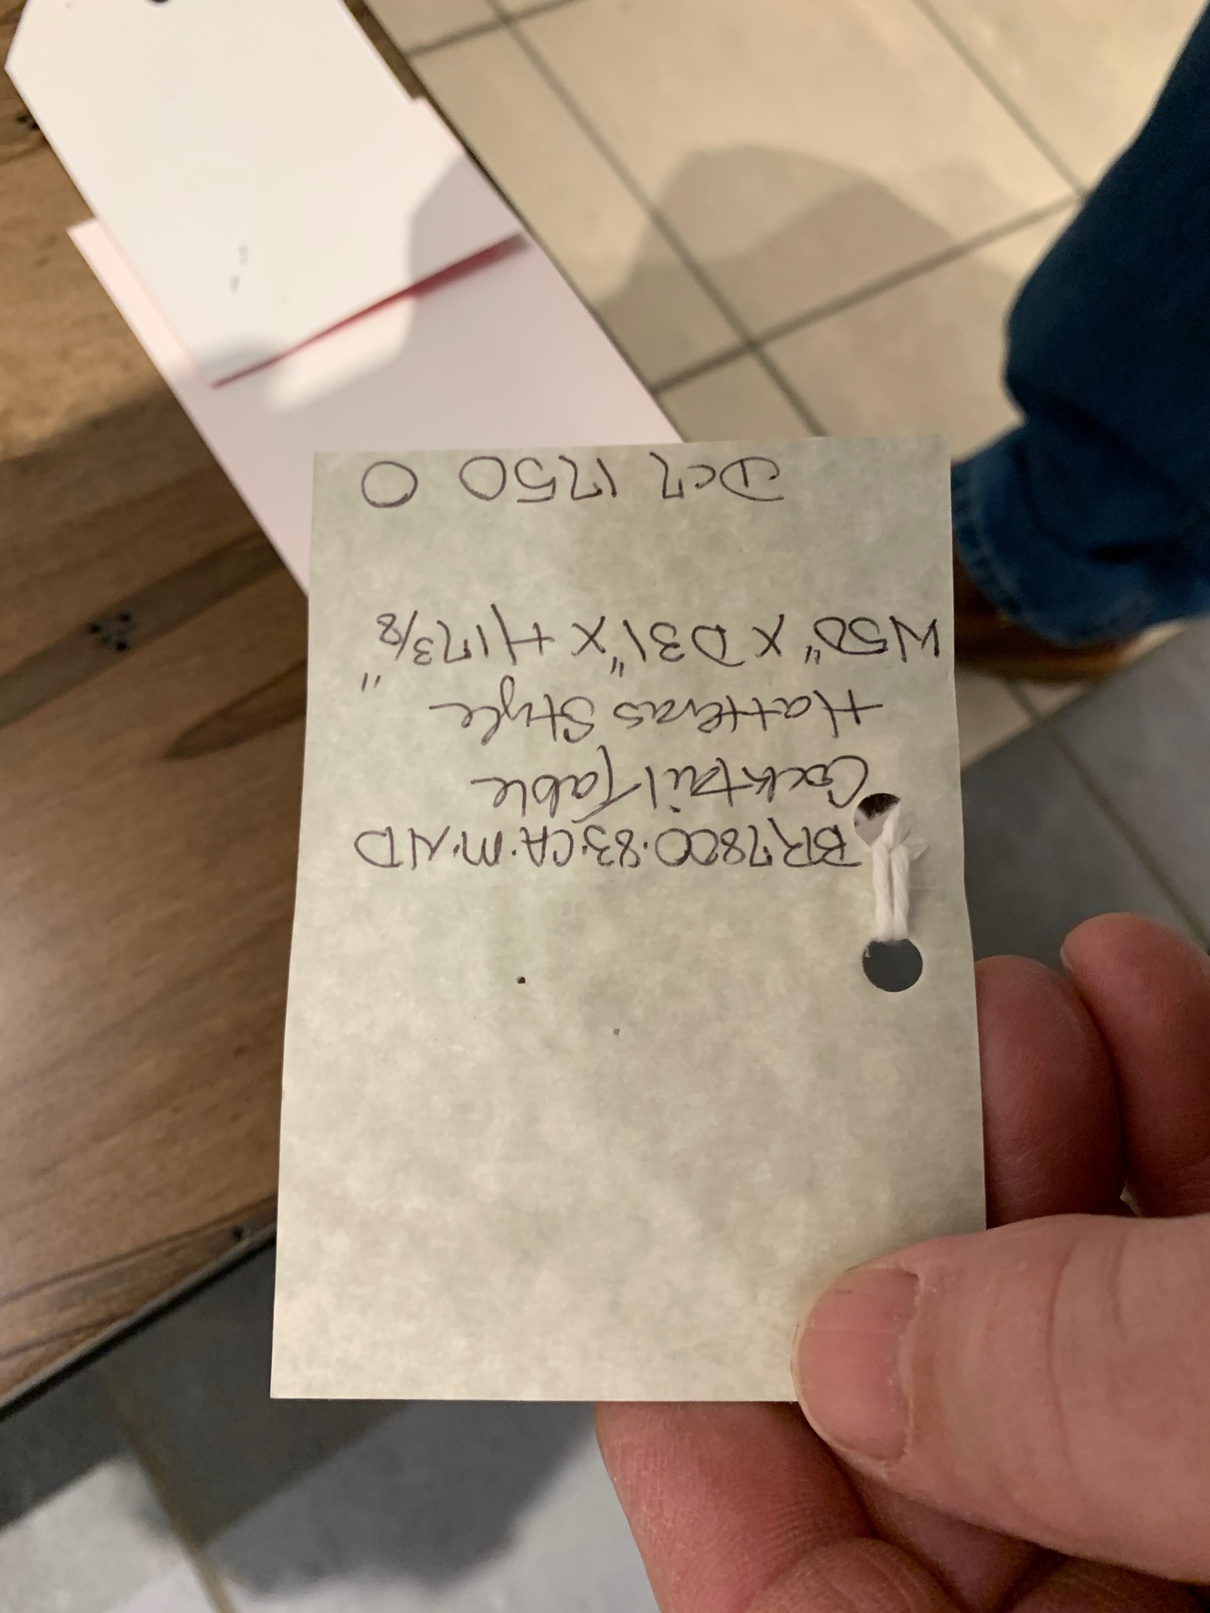 BR7800.83.CA.M.ND
Cocktail Table
Hatteras Style
W50" X D31" X H17 3/8"